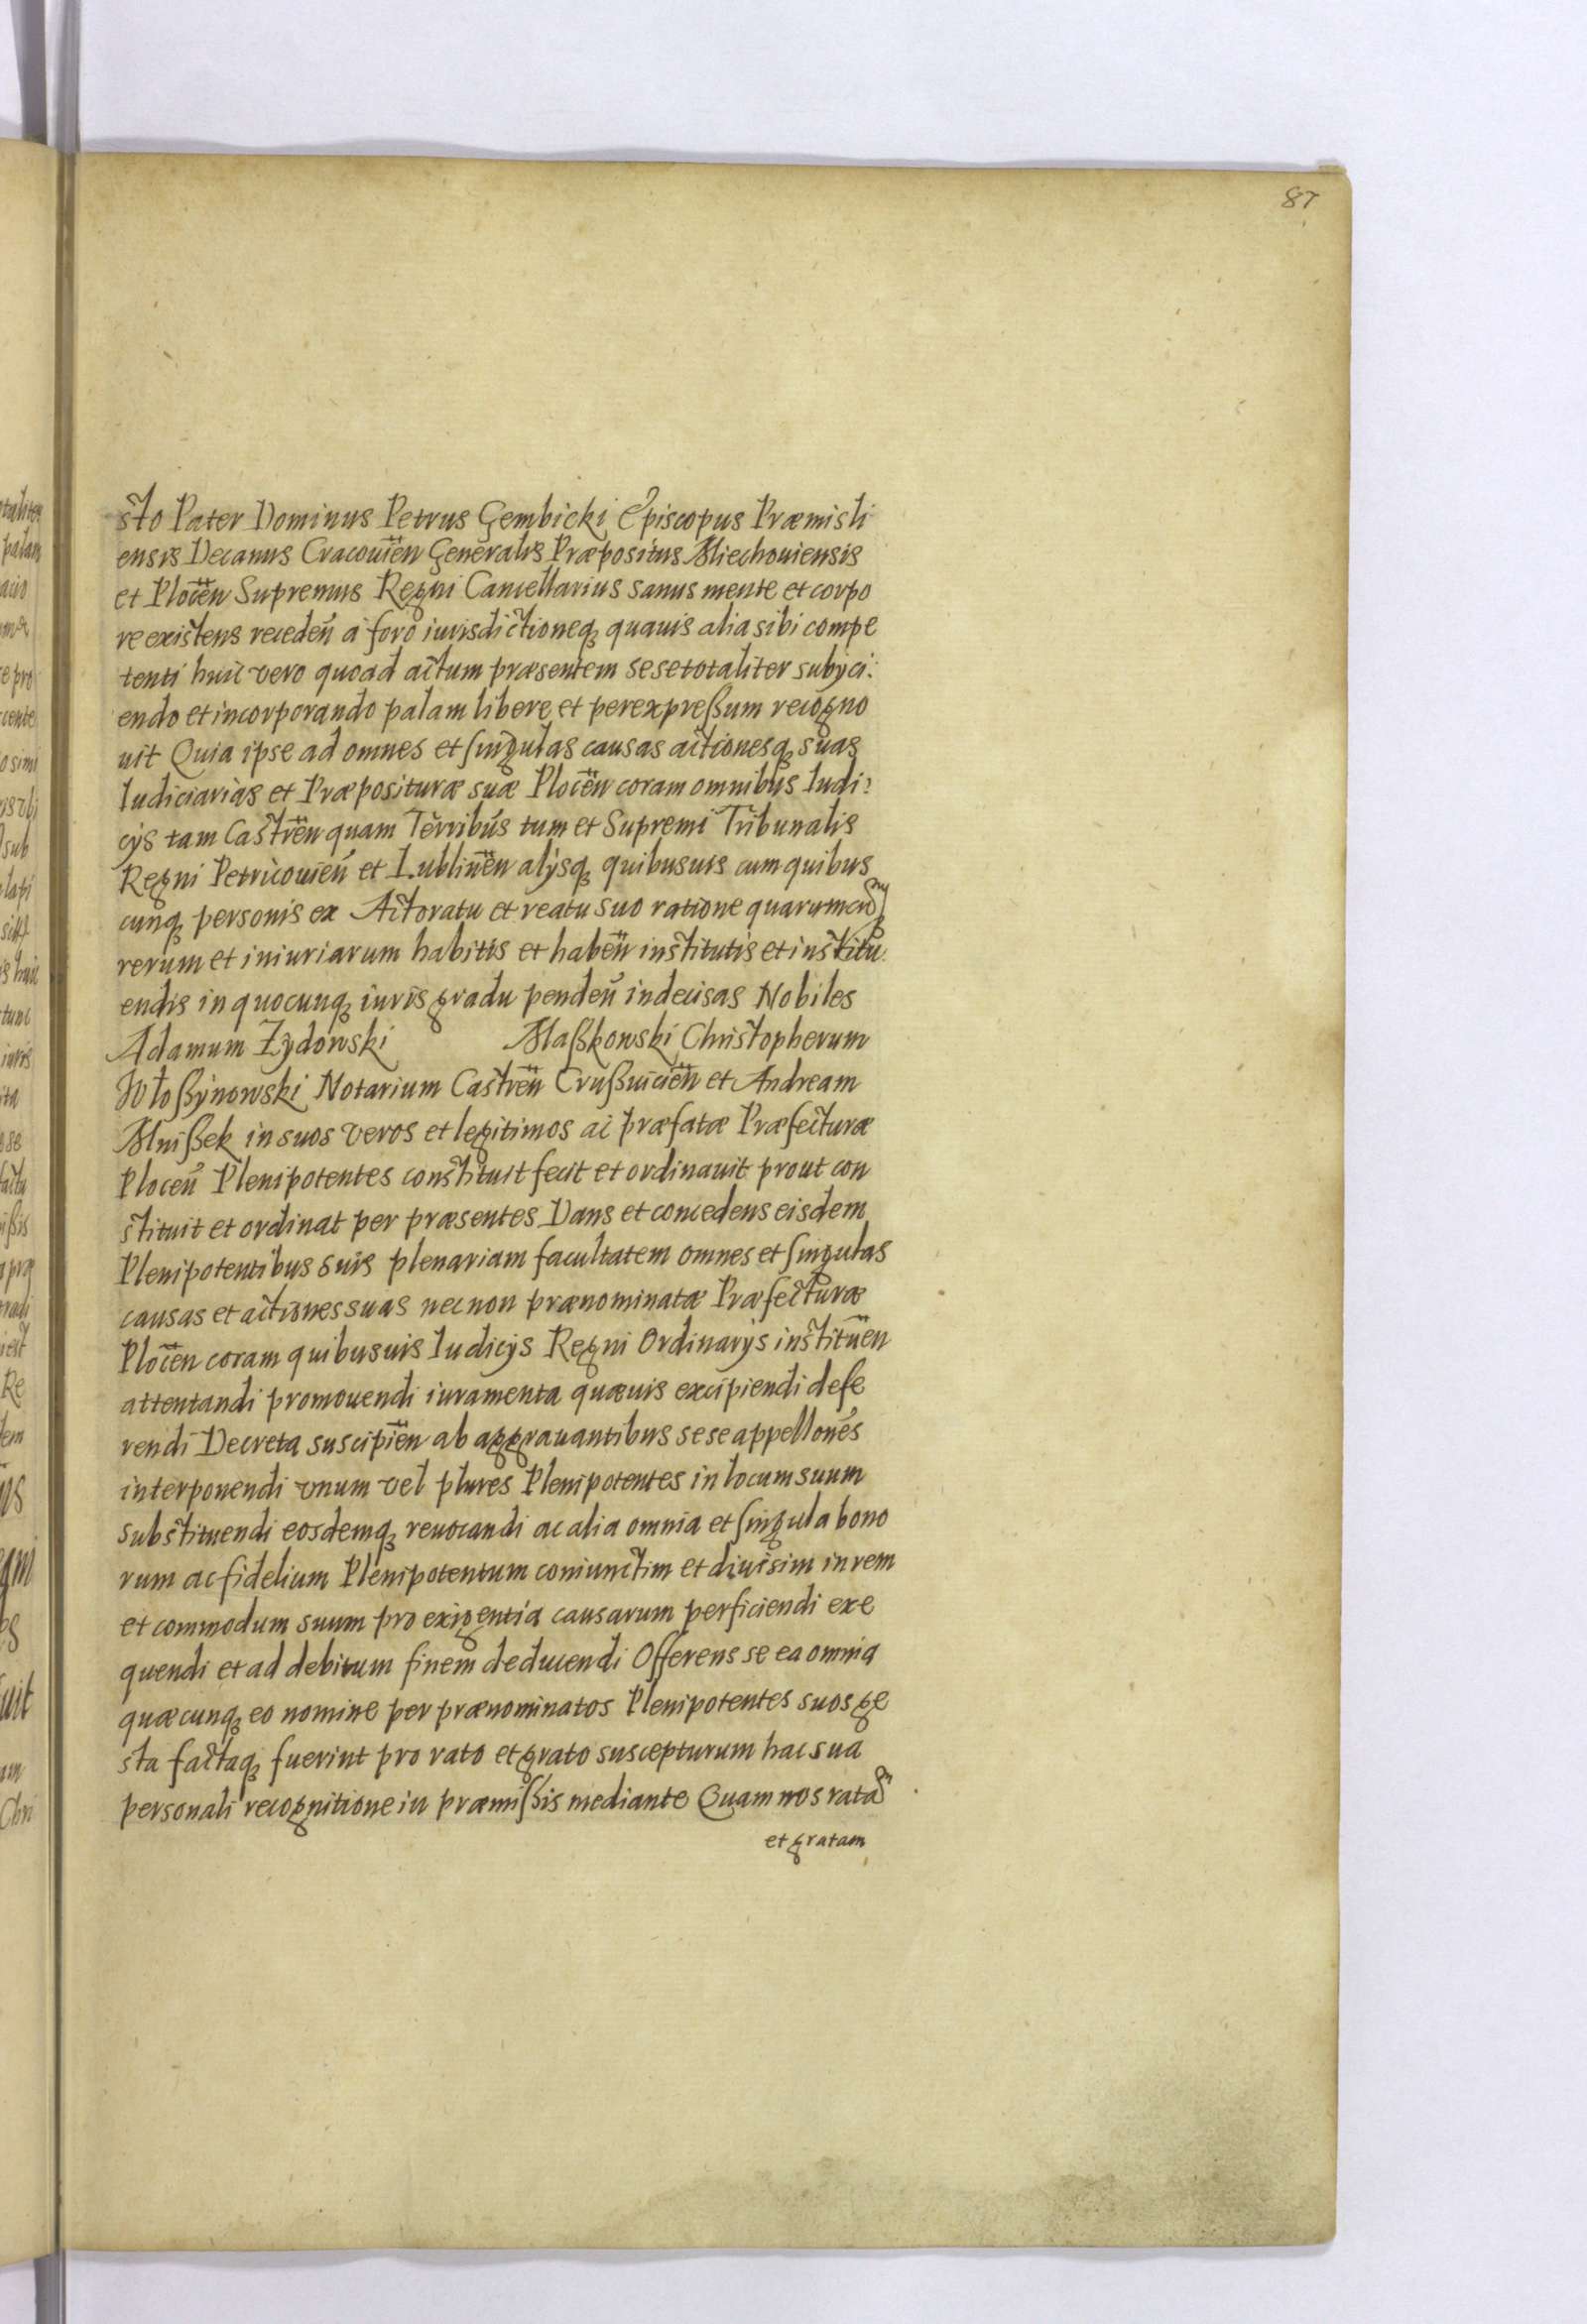 87
sto Pater Dominus Petrus Gembicki Episcopus Præmisli
ensis Decanus Cracouien̄ Generalis Præpositus Miechouiensis
et Plocen̄ Supremus Regni Cancellarius sanus mente et corpo
re existens receden̄ a foro iurisdictioneq̧ quauis alia sibi compe
tenti huic vero quoad actum præsentem sese totaliter subÿci:
endo et incorporando palam libere et per expreßum recogno
uit Quia ipse ad omnes et singulas causas actionesq̧ suas
Iudiciarias et Præposituræ suæ Plocen̄ coram omnibus Iudi:
cÿs tam Castren̄ quam Terribus tum et Supremi Tribunalis
Regni Petricouien̄ et Lublinen̄ alÿsq̧ quibusuis cum quibus
cunq̧ personis ex Actoratu et reatu suo ratione quarumcunq̧
rerum et iniuriarum habitis et haben̄ institutis et institu
endis in quocunq̧ iuris gradu penden̄ indecisas Nobiles
Adamum Zydowski Maßkowski Christopherum
Włoßynowski Notarium Castren̄ Crußuicien̄ et Andream
Mnißek in suos veros et legitimos ac præfatæ Præfecturæ
Plocen̄ Plenipotentes constituit fecit et ordinauit prout con
stituit et ordinat per præsentes Dans et concedens eisdem
Plenipotentibus suis plenariam facultatem omnes et singulas
causas et actiones suas necnon prænominatæ Præfecturæ
Plocen̄ coram quibusuis Iudicÿs Regni Ordinarÿs instituen̄
attentandi promouendi iuramenta quæuis excipiendi defe
rendi Decreta suscipien̄ ab aggrauantibus sese appellones̄
interponendi vnum vel plures Plenipotentes in locum suum
substituendi eosdemq̧ reuocandi ac alia omnia et singula bono
rum ac fidelium Plenipotentum coniunctim et diuisim in rem
et commodum suum pro exigentia causarum perficiendi exe
quendi et ad debitum finem deducendi Offerens se ea omnia
quæcunq̧ eo nomine per prænominatos Plenipotentes suos ge
sta factaq̧ fuerint pro rato et grato suscepturum hac sua
personali recognitione in præmißis mediante Quam nos ratam
et gratam